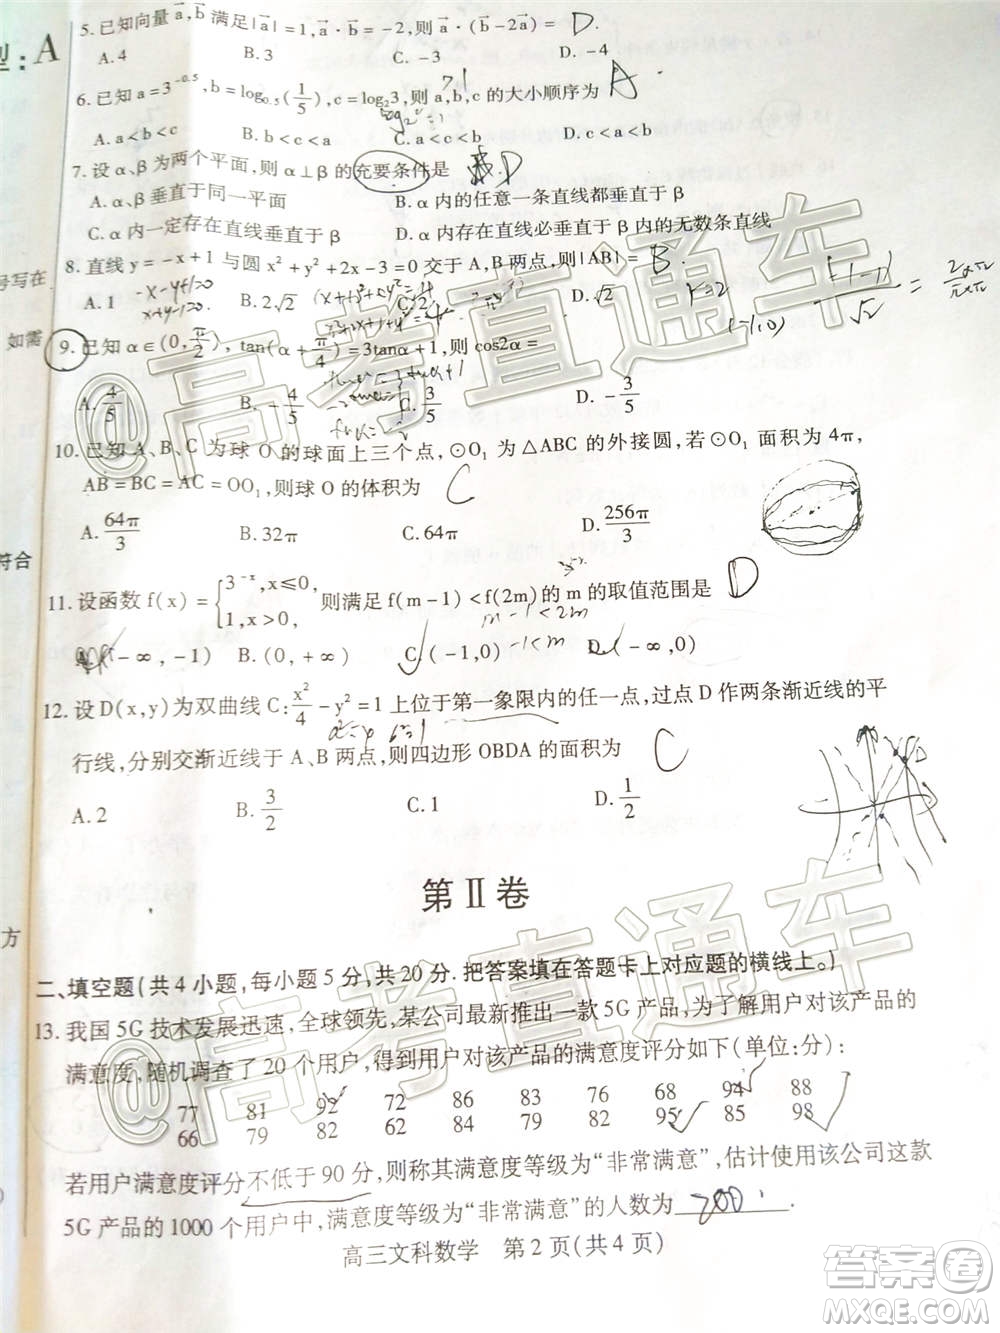 型：A
5.已知向量a,b满足|a|=1,a·b=-2,则a·(b-2a)= D.
A.4 B. C.-3 D.-4
6.已知a=3^{-0.5},b=log_{0.5}(1/5),c=log_2 3,则a,b,c的大小顺序为 A
A.a<b<c B. C.c<a<b D.a<c<b
7.设α、β为两个平面,则α⊥β的充要条件是 D
A.α、β垂直于同一平面 B.α内的任意一条直线都垂直于β
C.α内一定存在直线垂直于β D.α内存在直线必垂直于β内的无数条直线
号写在
8.直线y=-x+1与圆x²+y²+2x-3=0交于A,B两点,则|AB|= B.
A.1 B.2√2 C. D.√2
-x-y+1=0
x+y-1=0
r=2
(-1,0)
|-1-1|/√2 =
如需
9.已知α∈(0,π/2),tan(α+π/4)=3tanα+1,则cos2α=
A.4/5 B.-4/5 C.3/5 D.-3/5
10.已知A、B、C为球O的球面上三个点,⊙O₁为△ABC的外接圆,若⊙O₁面积为4π,
AB=BC=AC=OO₁,则球O的体积为 C
A.64π/3 B.32π C.64π D.256π/3
符合
11.设函数f(x)={3^{-x},x≤0, 1,x>0, 则满足f(m-1)<f(2m)的m的取值范围是 D
m-1<2m
-1<m
A.(-∞,-1) B.(0,+∞) C.(-1,0) D.(-∞,0)
12.设D(x,y)为双曲线C:x²/4-y²=1上位于第一象限内的任一点,过点D作两条渐近线的平
行线,分别交渐近线于A、B两点,则四边形OBDA的面积为 C
A.2 B.3/2 C.1 D.1/2
D
第Ⅱ卷
方
二、填空题(共4小题,每小题5分,共20分.把答案填在答题卡上对应题的横线上。)
13.我国5G技术发展迅速,全球领先,某公司最新推出一款5G产品,为了解用户对该产品的
满意度,随机调查了20个用户,得到用户对该产品的满意度评分如下(单位:分):
77 81 92 72 86 83 76 68 94 88
66 79 82 81 82 84 79 95 85 98
若用户满意度评分不低于90分,则称其满意度等级为“非常满意”,估计使用该公司这款
5G产品的1000个用户中,满意度等级为“非常满意”的人数为 200 .
高三文科数学 第2页(共4页)
@高考直通车
@高考直通车
答案圈
MXQE.COM